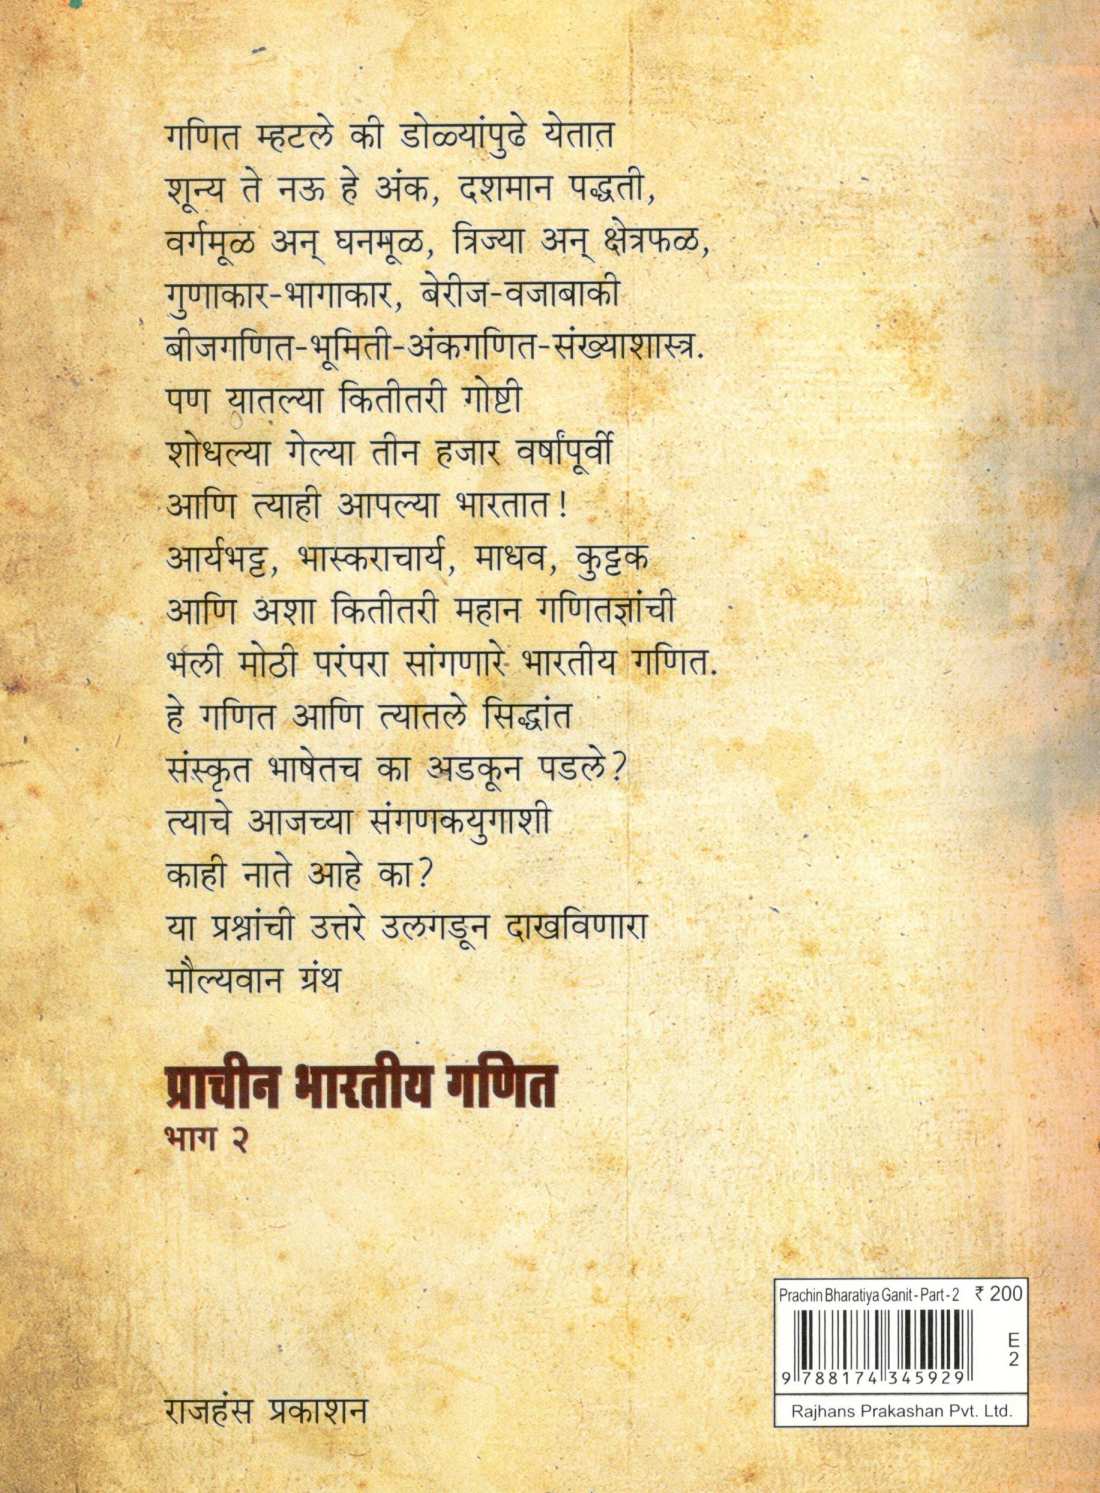 गणित म्हटले की डोळ्यांपुढे येतात
शून्य ते नऊ हे अंक, दशमान पद्धती,
वर्गमूळ अन् घनमूळ, त्रिज्या अन् क्षेत्रफळ,
गुणाकार-भागाकार, बेरीज-वजाबाकी
बीजगणित-भूमिती-अंकगणित-संख्याशास्त्र.
पण यातल्या कितीतरी गोष्टी
शोधल्या गेल्या तीन हजार वर्षांपूर्वी
आणि त्याही आपल्या भारतात!
आर्यभट्ट, भास्कराचार्य, माधव, कुट्टक
आणि अशा कितीतरी महान गणितज्ञांची
भली मोठी परंपरा सांगणारे भारतीय गणित.
हे गणित आणि त्यातले सिद्धांत
संस्कृत भाषेतच का अडकून पडले?
त्याचे आजच्या संगणकयुगाशी
काही नाते आहे का?
या प्रश्नांची उत्तरे उलगडून दाखविणारा
मौल्यवान ग्रंथ
प्राचीन भारतीय गणित
भाग २
Prachin Bharatiya Ganit-Part-2 ₹ 200
E
2
9 788174 345929
Rajhans Prakashan Pvt. Ltd.
राजहंस प्रकाशन